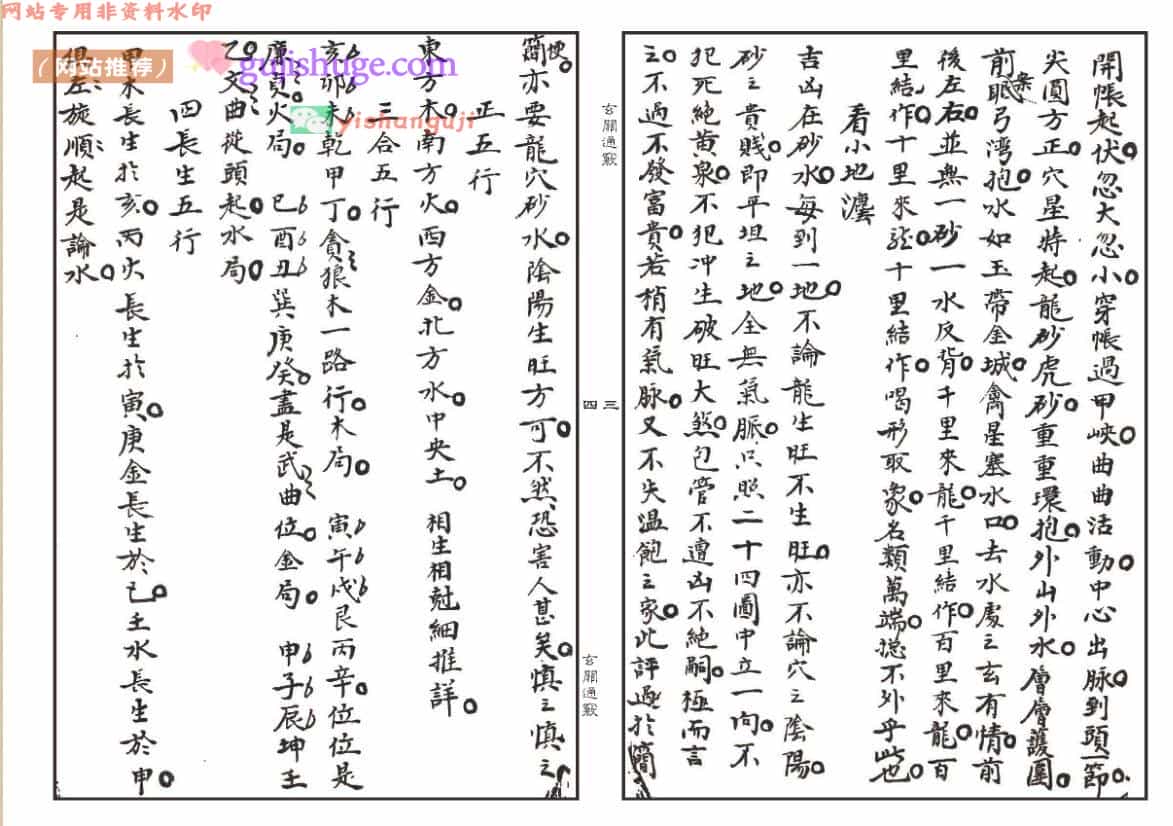 网站专用非资料水印
（网站推荐）
gujishuge.com
yishanguji
開帳起伏忽大忽小穿帳過甲峽曲曲活動中心出脉到頭一節
尖圓方正穴星特起龍砂虎砂重重環抱外山外水層層護圍
前案眠弓湾抱水如玉帶金城禽星塞水口去水處之玄有情前
後左右並無一砂一水反背千里來龍千里結作百里來龍百
里結作十里來龍十里結作喝形取象名類萬端揔不外乎此也
看小地灋
吉凶在砂水每到一地不論龍生旺不生旺亦不論穴之陰陽
砂之貴賤即平坦之地全無氣脈只照二十四圖中立一向不
犯死絕黄泉不犯冲生破旺大煞包管不遭凶不絕嗣極而言
之不過不發富貴若稍有氣脉又不失温飽之家此評過於簡
玄關通竅
三四
玄關通竅
便簡亦要龍穴砂水陰陽生旺方可不然恐害人甚矣慎之慎之
正五行
東方木南方火西方金北方水中央土 相生相尅細推詳
三合五行
亥卯未乾甲丁貪狼木一路行木局 寅午戌艮丙辛位位是
廉貞火局 巳酉丑巽庚癸盡是武曲位金局 申子辰坤壬
乙文曲從頭起水局
四長生五行
甲木長生於亥丙火長生於寅庚金長生於巳壬水長生於申
俱左旋順起是論水